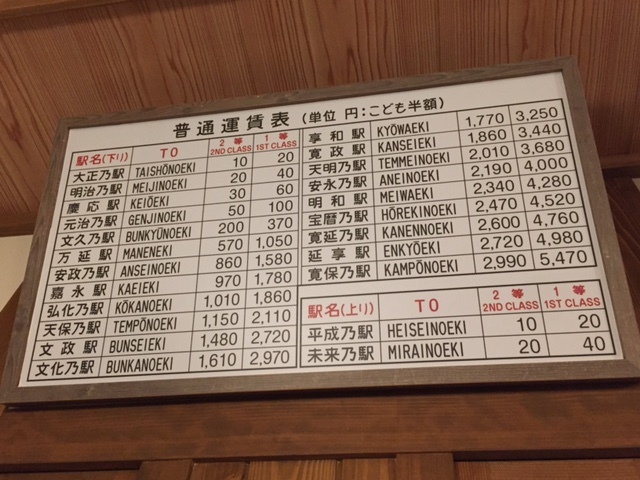 普通運賃表 (単位 円:こども半額)
駅名(下り) TO 2等 2ND CLASS 1等 1ST CLASS
大正乃駅 TAISHŌNOEKI 10 20
明治乃駅 MEIJINOEKI 20 40
慶応駅 KEIŌEKI 30 60
元治乃駅 GENJINOEKI 50 100
文久乃駅 BUNKYŪNOEKI 200 370
万延駅 MANENEKI 570 1,050
安政乃駅 ANSEINOEKI 860 1,580
嘉永駅 KAEIEKI 970 1,780
弘化乃駅 KŌKANOEKI 1,010 1,860
天保乃駅 TEMPŌNOEKI 1,150 2,110
文政駅 BUNSEIEKI 1,480 2,720
文化乃駅 BUNKANOEKI 1,610 2,970
享和駅 KYŌWAEKI 1,770 3,250
寛政駅 KANSEIEKI 1,860 3,440
天明乃駅 TEMMEINOEKI 2,010 3,680
安永乃駅 ANEINOEKI 2,190 4,000
明和駅 MEIWAEKI 2,340 4,280
宝暦乃駅 HŌREKINOEKI 2,470 4,520
寛延乃駅 KANENNOEKI 2,600 4,760
延享駅 ENKYŌEKI 2,720 4,980
寛保乃駅 KAMPŌNOEKI 2,990 5,470
駅名(上り) TO 2等 2ND CLASS 1等 1ST CLASS
平成乃駅 HEISEINOEKI 10 20
未来乃駅 MIRAINOEKI 20 40